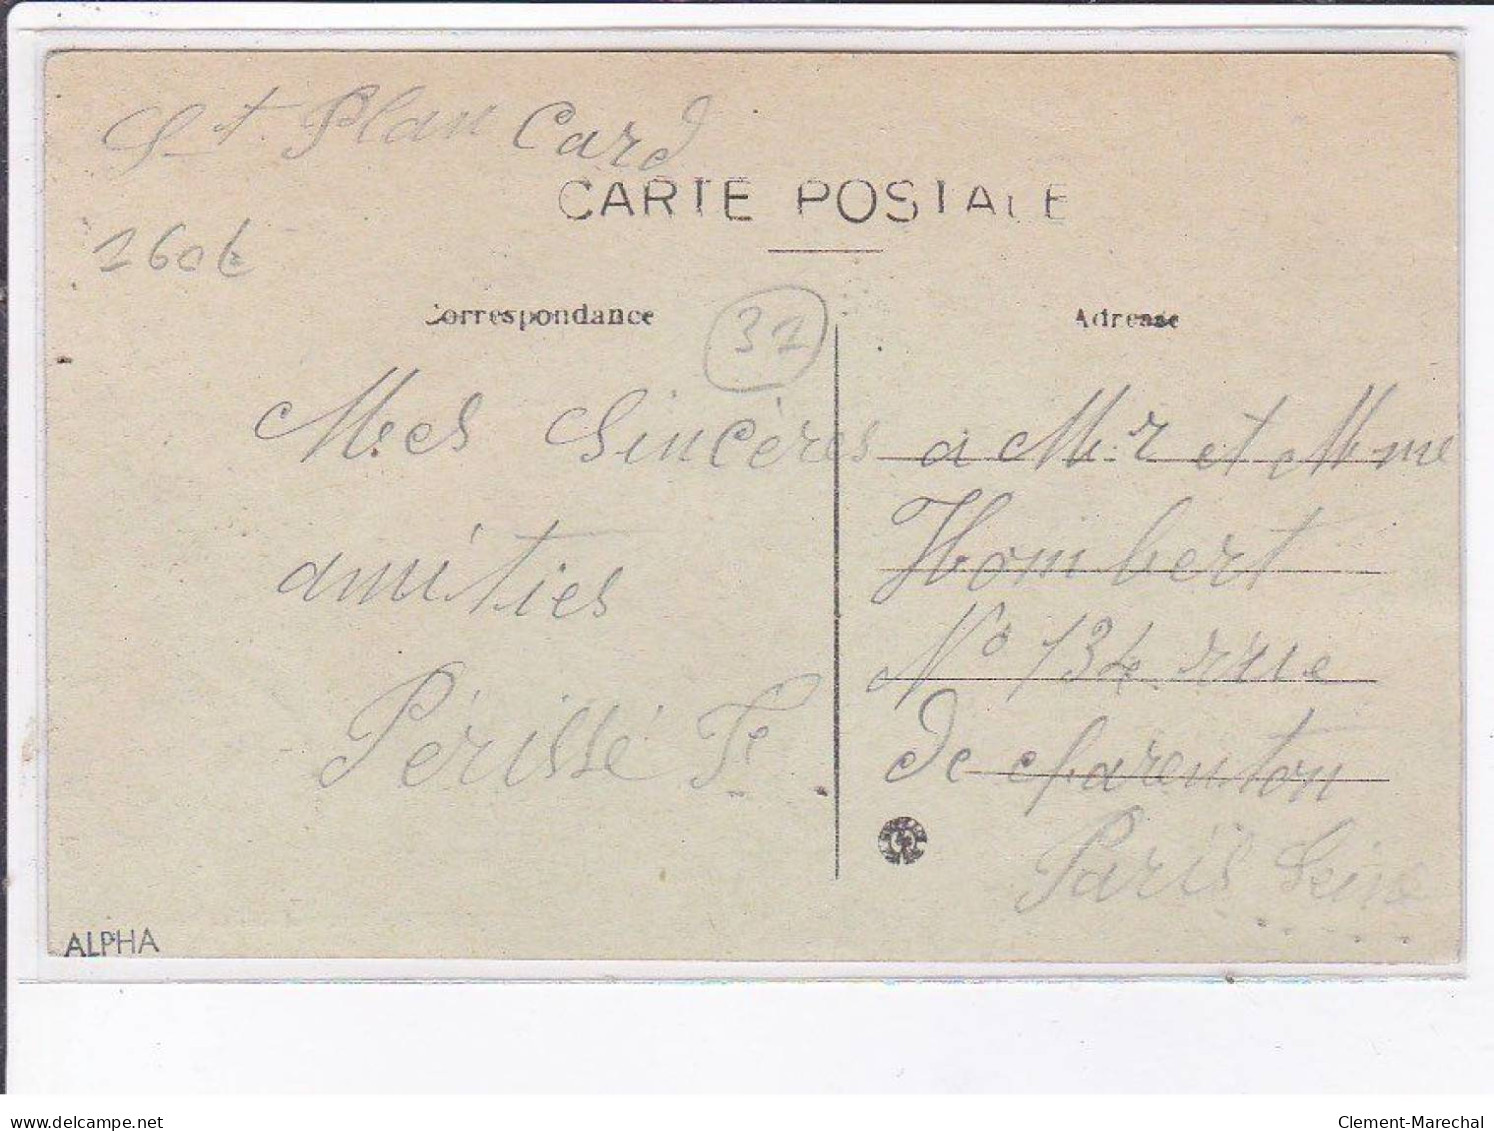 St. Plan Card
CARTE POSTALE
160€
Correspondance
37
Adresse
Mes Sincères
amitiés
Périssé Fe
a Mr et Mme
Hombert
No 134 rue
De charenton
Paris Seine
ALPHA
www.delcampe.net
Clement-Marechal